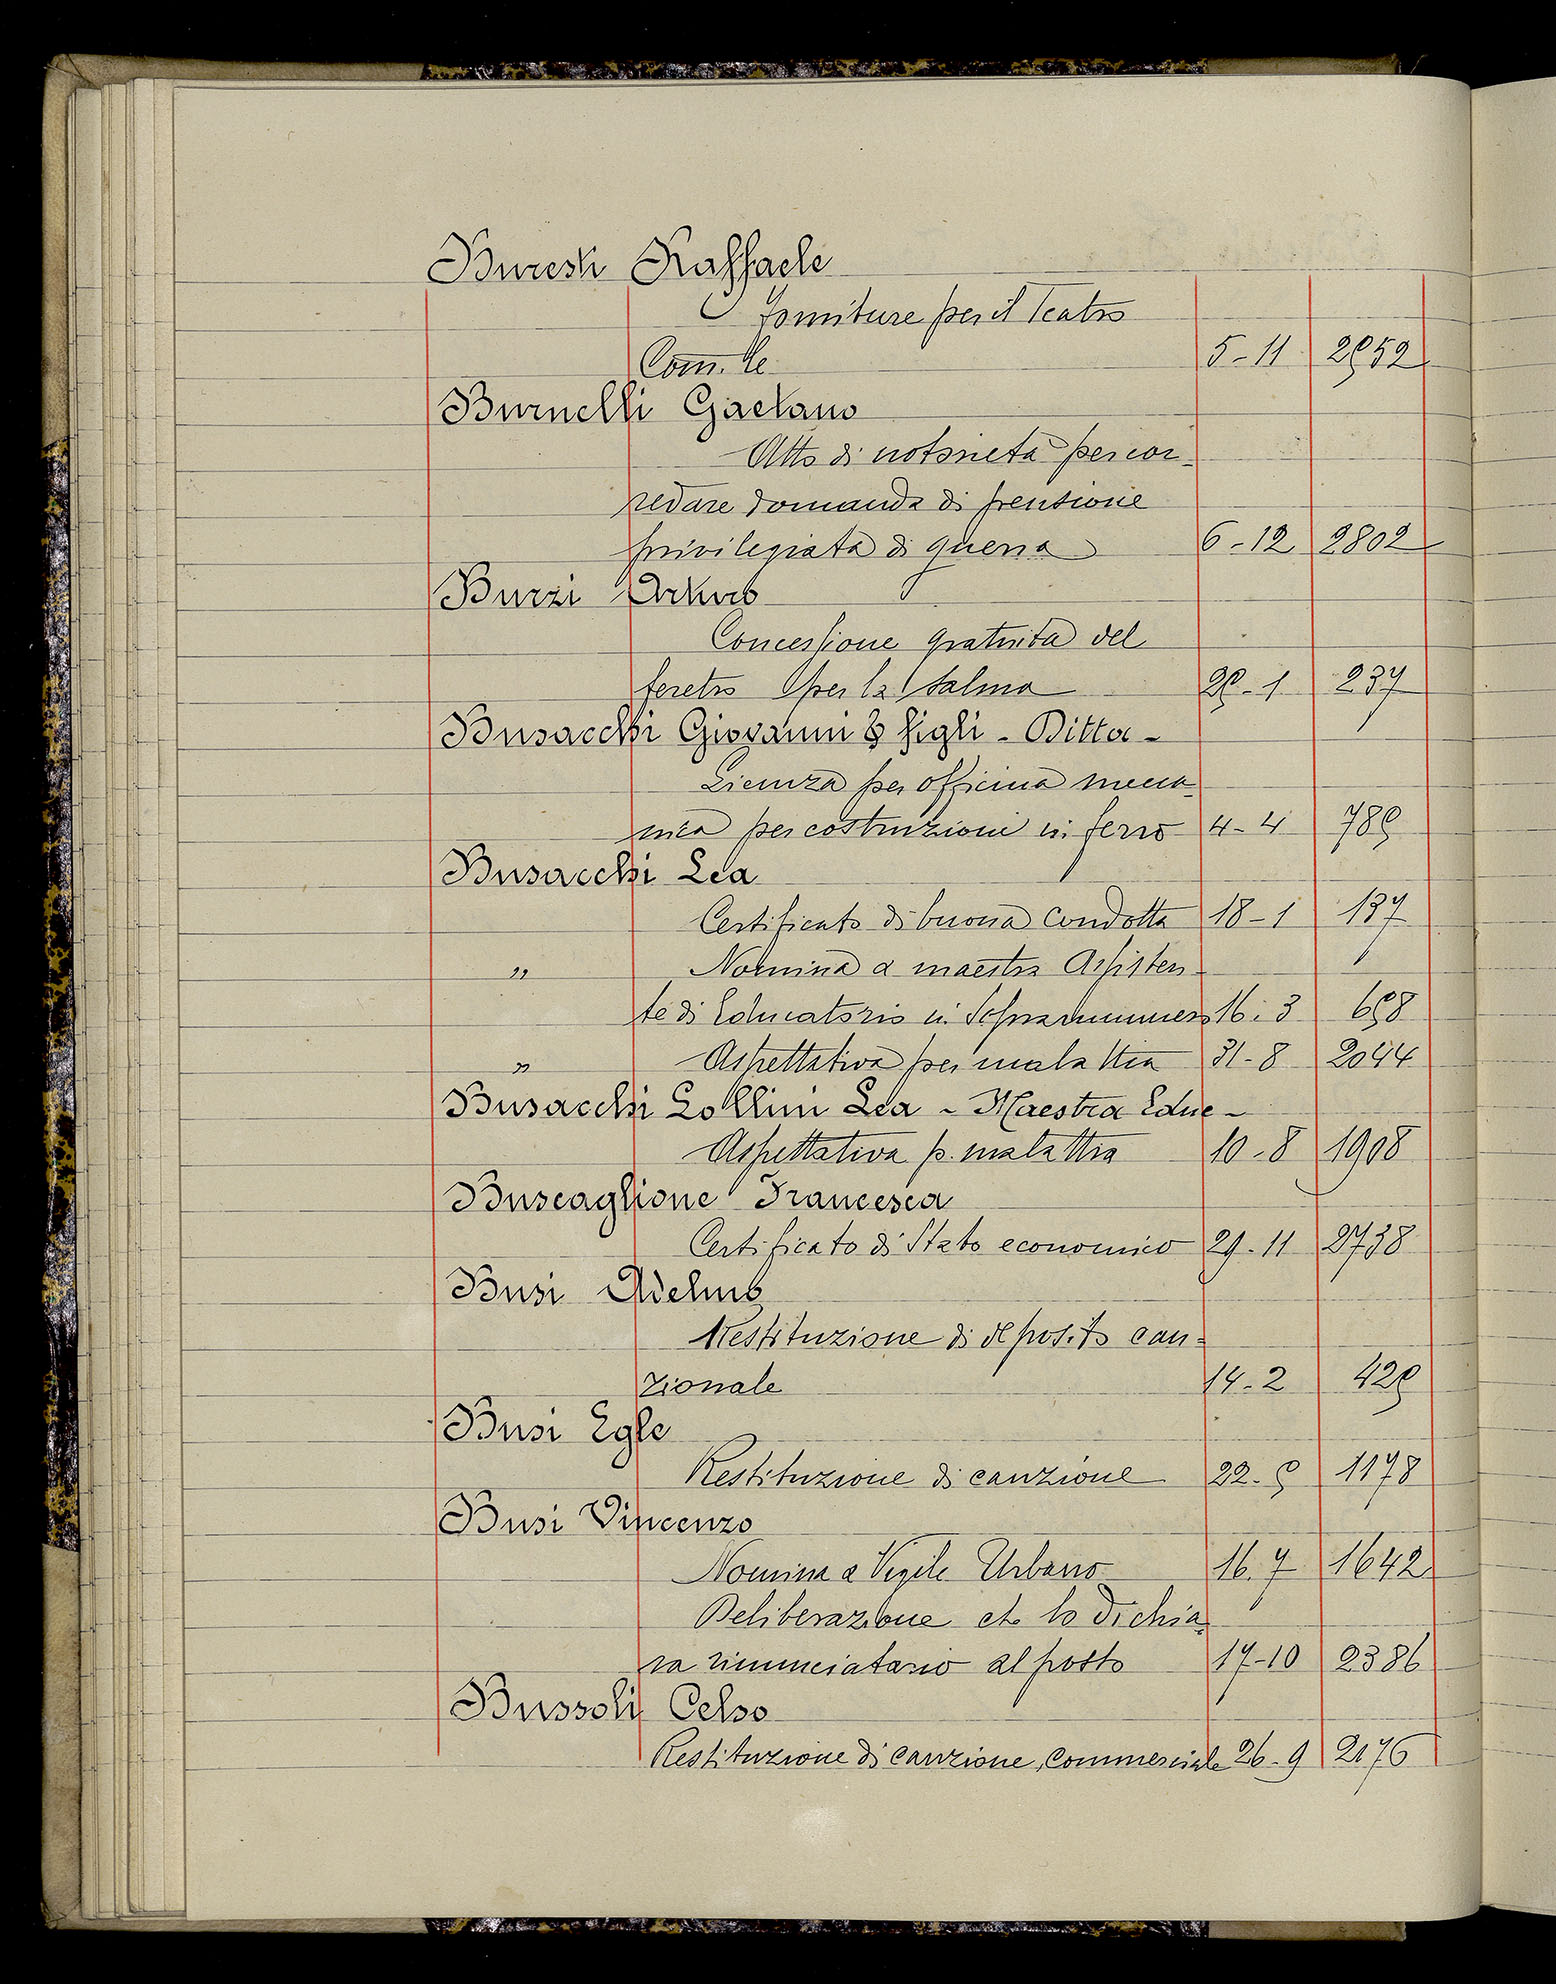 Buresti Raffaele
forniture per il Teatro
Com.le 5-11 2552
Burnelli Gaetano
Atto di notorietà per cor-
redare domanda di pensione
privilegiata di guerra 6-12 2802
Burzi Arturo
Concessione gratuita del
feretro per la salma 25-1 237
Busacchi Giovanni & figli - Ditta -
Licenza per officina mecca-
nica per costruzioni in ferro 4-4 785
Busacchi Lea
Certificato di buona condotta 18-1 137
" Nomina a maestra Assisten-
te di Educatorio in Soprannumero 16-3 658
" Aspettativa per malattia 31-8 2044
Busacchi Lollini Lea - Maestra Educ-
Aspettativa p. malattia 10-8 1908
Buscaglione Francesca
Certificato di Stato economico 29-11 2738
Busi Adelmo
Restituzione di deposito cau=
zionale 14-2 425
Busi Egle
Restituzione di cauzione 22-5 1178
Busi Vincenzo
Nomina a Vigile Urbano 16.7 1642
Deliberazione che lo dichia-
ra rinunciatario al posto 17-10 2386
Bussoli Celso
Restituzione di cauzione commerciale 26-9 2176